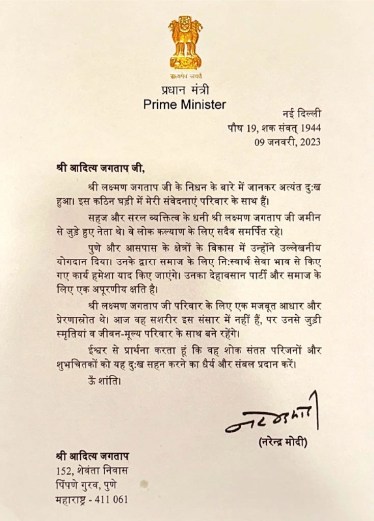 सत्यमेव जयते
प्रधान मंत्री
Prime Minister
नई दिल्ली
पौष 19, शक संवत् 1944
09 जनवरी, 2023
श्री आदित्य जगताप जी,
श्री लक्ष्मण जगताप जी के निधन के बारे में जानकर अत्यंत दुःख
हुआ। इस कठिन घड़ी में मेरी संवेदनाएं परिवार के साथ हैं।
सहज और सरल व्यक्तित्व के धनी श्री लक्ष्मण जगताप जी जमीन
से जुड़े हुए नेता थे। वे लोक कल्याण के लिए सदैव समर्पित रहे।
पुणे और आसपास के क्षेत्रों के विकास में उन्होंने उल्लेखनीय
योगदान दिया। उनके द्वारा समाज के लिए नि:स्वार्थ सेवा भाव से किए
गए कार्य हमेशा याद किए जाएंगे। उनका देहावसान पार्टी और समाज के
लिए एक अपूरणीय क्षति है।
श्री लक्ष्मण जगताप जी परिवार के लिए एक मजबूत आधार और
प्रेरणास्रोत थे। आज वह सशरीर इस संसार में नहीं हैं, पर उनसे जुड़ी
स्मृतियां व जीवन-मूल्य परिवार के साथ बने रहेंगे।
ईश्वर से प्रार्थना करता हूं कि वह शोक संतप्त परिजनों और
शुभचिंतकों को यह दुःख सहन करने का धैर्य और संबल प्रदान करें।
ऊँ शांति।
(नरेन्द्र मोदी)
श्री आदित्य जगताप
152, शेवंता निवास
पिंपणे गुरव, पुणे
महाराष्ट्र - 411 061